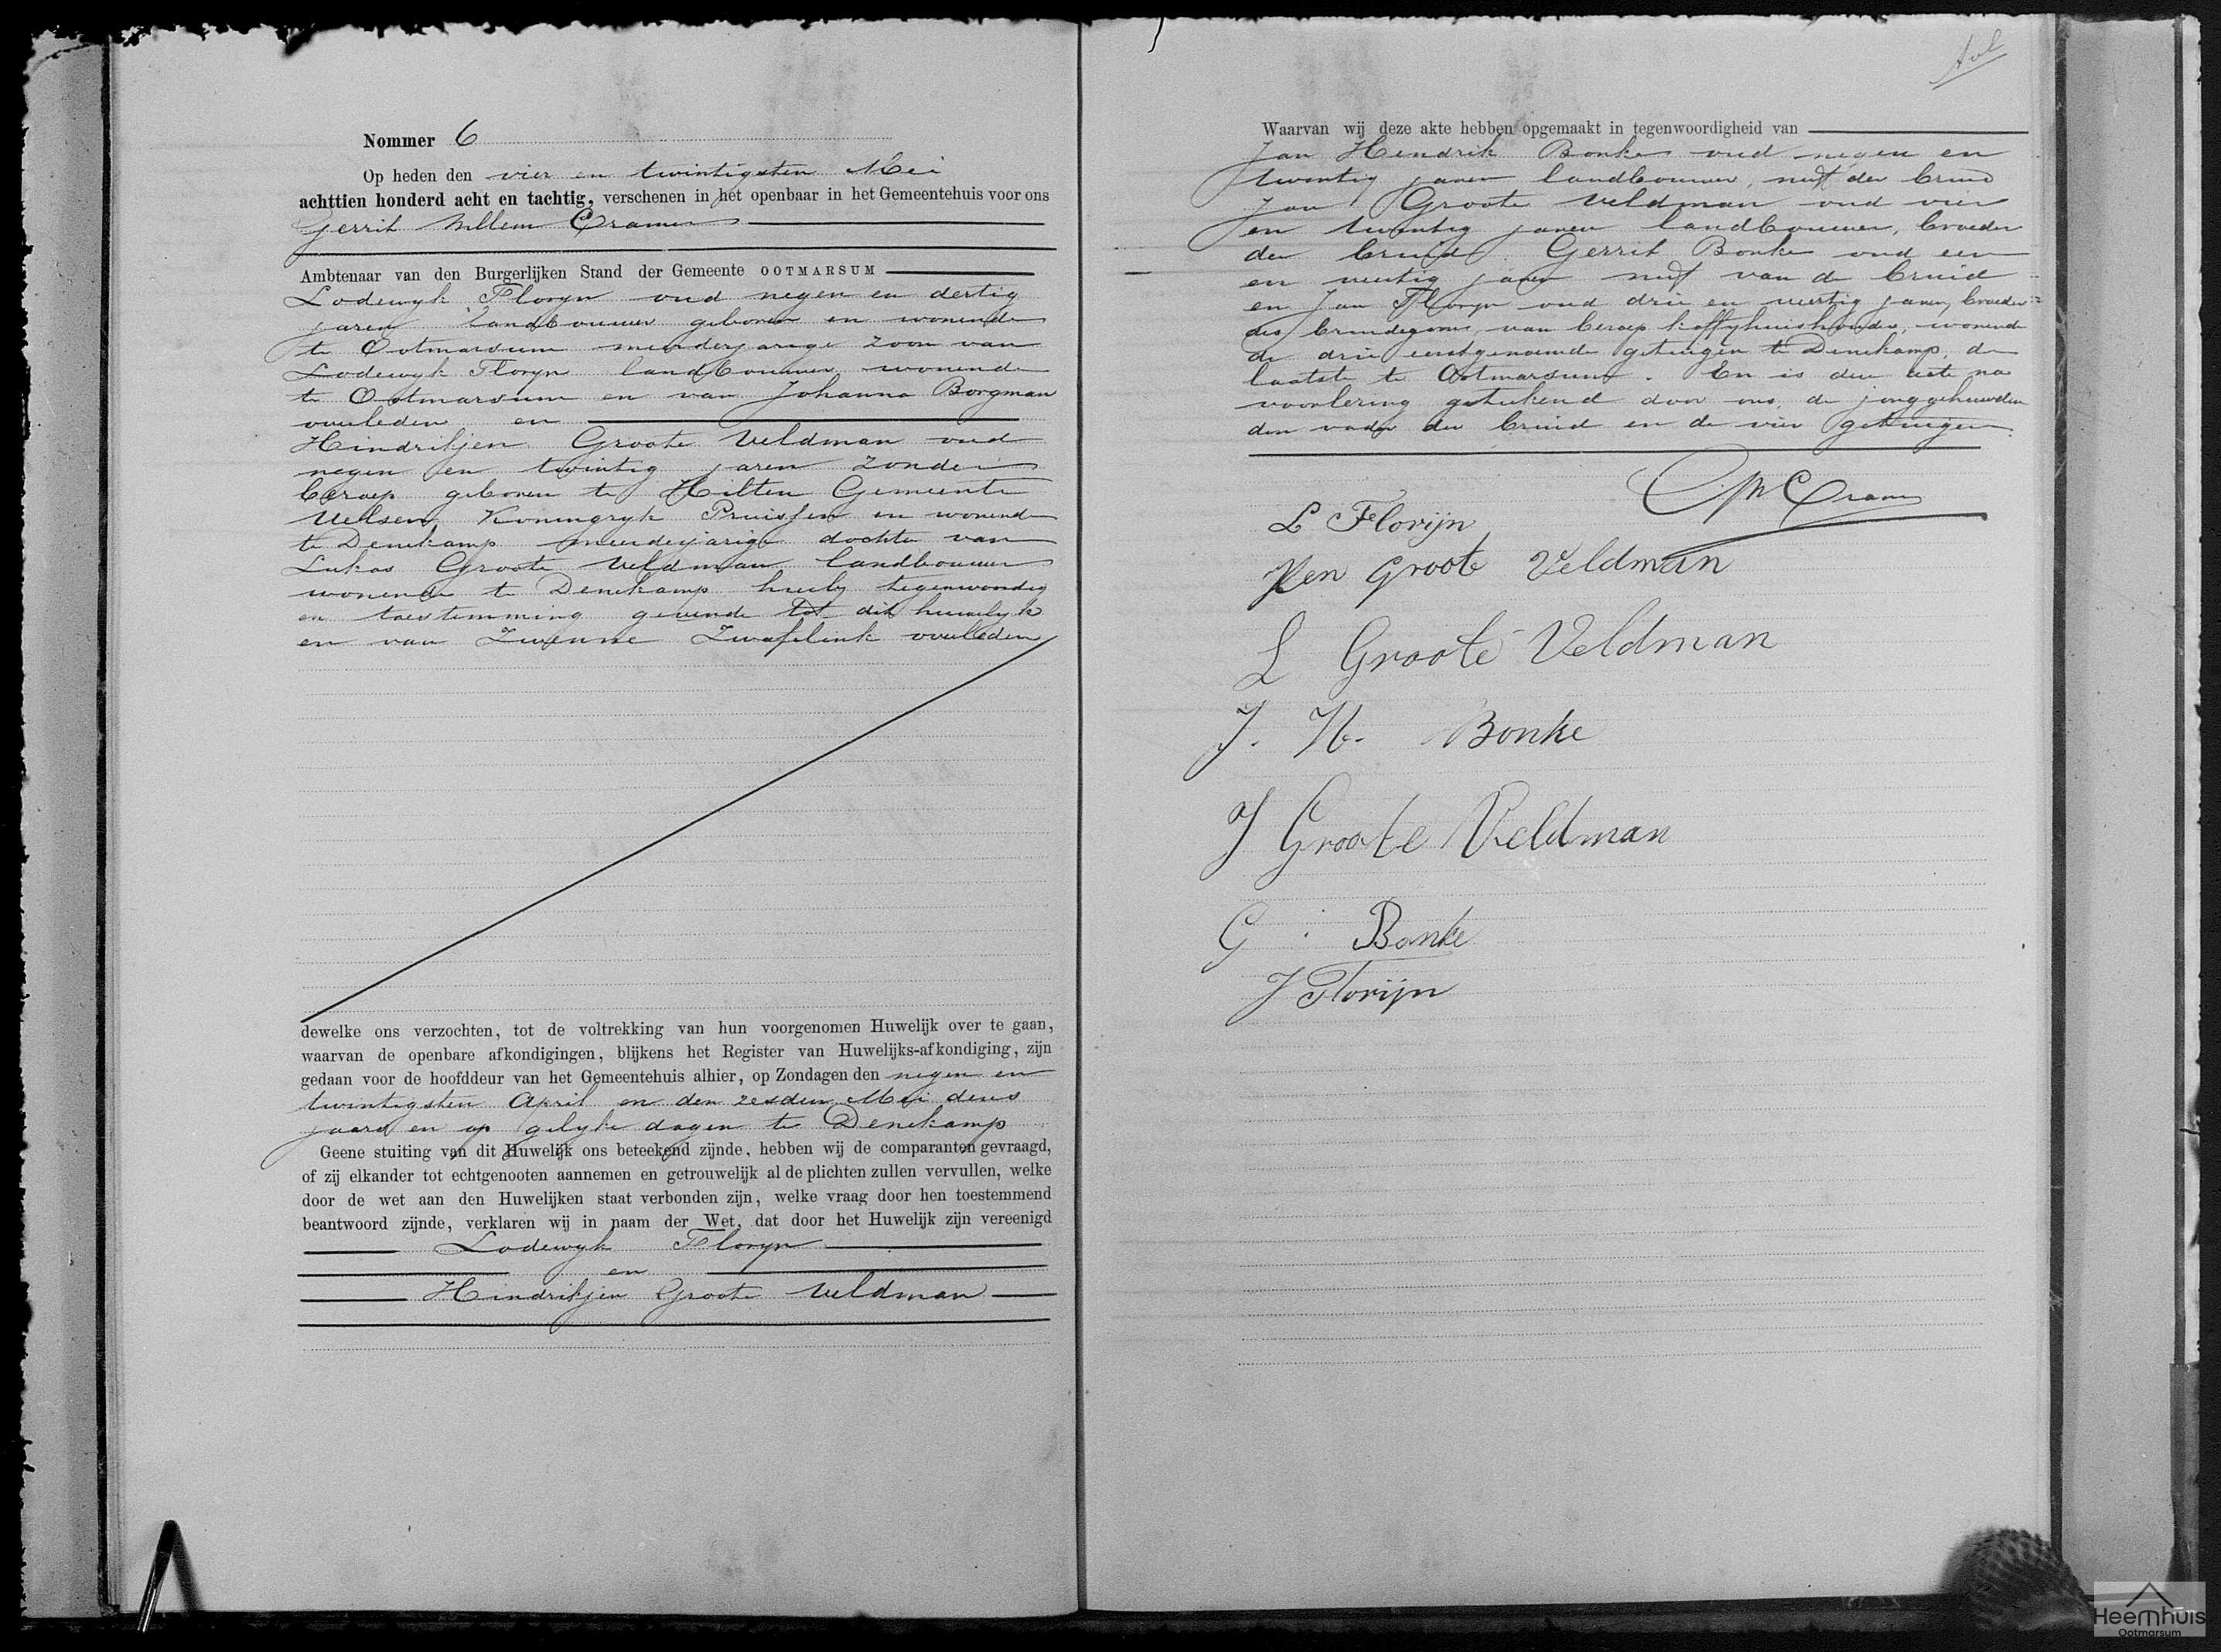 Nommer 6
Op heden den vier en twintigsten Mei
achttien honderd acht en tachtig, verschenen in het openbaar in het Gemeentehuis voor ons
Gerrit Willem Cramer
Ambtenaar van den Burgerlijken Stand der Gemeente OOTMARSUM
Lodewyk Floryn oud negen en dertig
jaren landbouwer geboren en wonende
te Ootmarsum meerderjarige zoon van
Lodewyk Floryn landbouwer wonende
te Ootmarsum en van Johanna Borgman
overleden en
Hindrikjen Groote Veldman oud
negen en twintig jaren zonder
beroep geboren te Hilten Gemeente
Uelsen Koningryk Pruissen en wonende
te Denekamp meerderjarige dochter van
Lukas Groote Veldman landbouwer
wonende te Denekamp hierby tegenwoordig
en toestemming gevende tot dit huwelyk
en van Zwenne Zwafelink overleden
dewelke ons verzochten, tot de voltrekking van hun voorgenomen Huwelijk over te gaan,
waarvan de openbare afkondigingen, blijkens het Register van Huwelijks-afkondiging, zijn
gedaan voor de hoofddeur van het Gemeentehuis alhier, op Zondagen den negen en
twintigsten April en den zesden Mei dezes
jaars en op gelyke dagen te Denekamp
Geene stuiting van dit Huwelijk ons beteekend zijnde, hebben wij de comparanten gevraagd,
of zij elkander tot echtgenooten aannemen en getrouwelijk al de plichten zullen vervullen, welke
door de wet aan den Huwelijken staat verbonden zijn, welke vraag door hen toestemmend
beantwoord zijnde, verklaren wij in naam der Wet, dat door het Huwelijk zijn vereenigd
Lodewyk Floryn
en
Hindrikjen Groote Veldman
Waarvan wij deze akte hebben opgemaakt in tegenwoordigheid van
Jan Hendrik Bonke oud negen en
twintig jaren landbouwer, neef der bruid
Jan Groote Veldman oud vier
en twintig jaren landbouwer, broeder
der bruid. Gerrit Bonke oud een
en veertig jaren neef van de bruid
en Jan Floryn oud drie en veertig jaren, broeder
des bruidegoms, van beroep koffyhuishouder, wonende
de drie eerstgenoemde getuigen te Denekamp, de
laatste te Ootmarsum. En is deze acte na
voorlezing geteekend door ons, de jonggehuwden
den vader der bruid en de vier getuigen.
GW Cramer
L Florijn
Hen Groote Veldman
L Groote Veldman
J. H. Bonke
J Groote Veldman
G. Bonke
J Florijn
Heemhuis
Ootmarsum